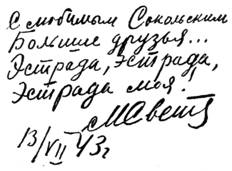 С любимым Сокольским
Большие друзья...
Эстрада, эстрада,
Эстрада моя!
МСвет
13/VII 43г